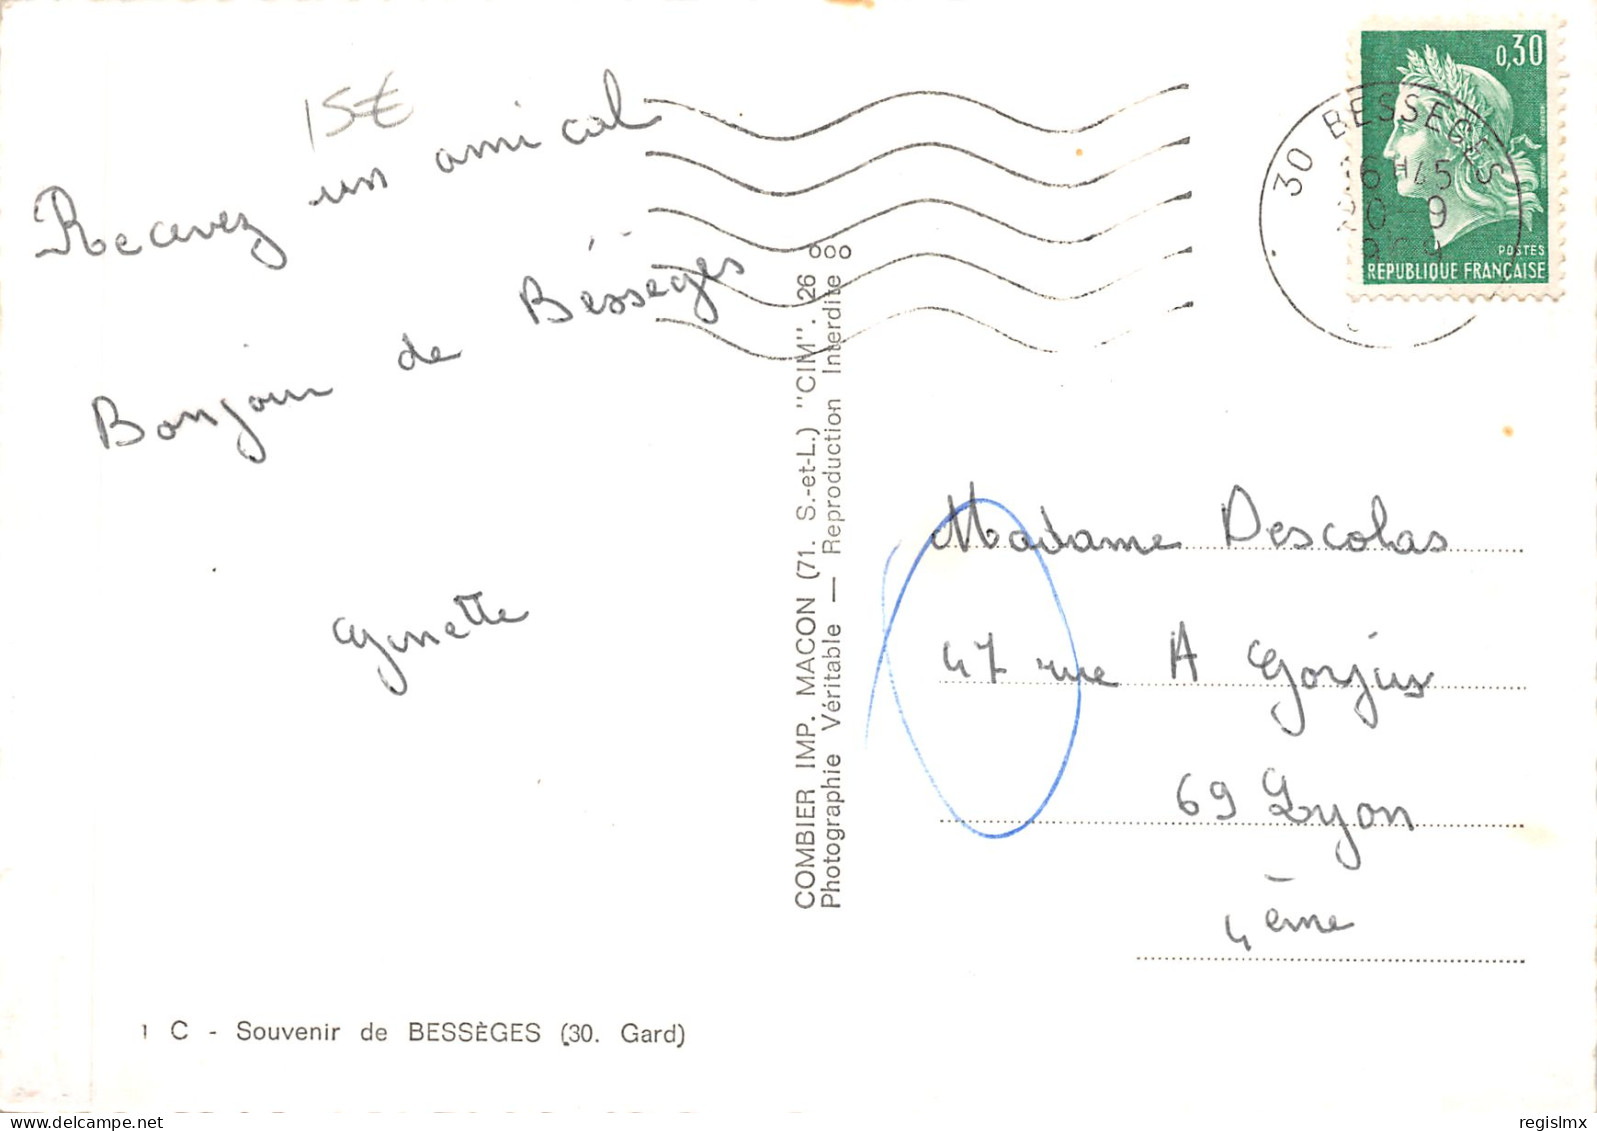 15€
Recevez un amical
Bonjour de Bésseges
Ginette
1 C - Souvenir de BESSÈGES (30. Gard)
COMBIER IMP. MACON (71. S.-et-L.) "CIM". 26 ooo
Photographie Véritable — Reproduction Interdite
0,30
POSTES
REPUBLIQUE FRANÇAISE
30 BESSEGES
16 H45
20-9
Madame Descolas
47 rue A Gorjus
69 Lyon
4ème
regislmx
delcampe.net